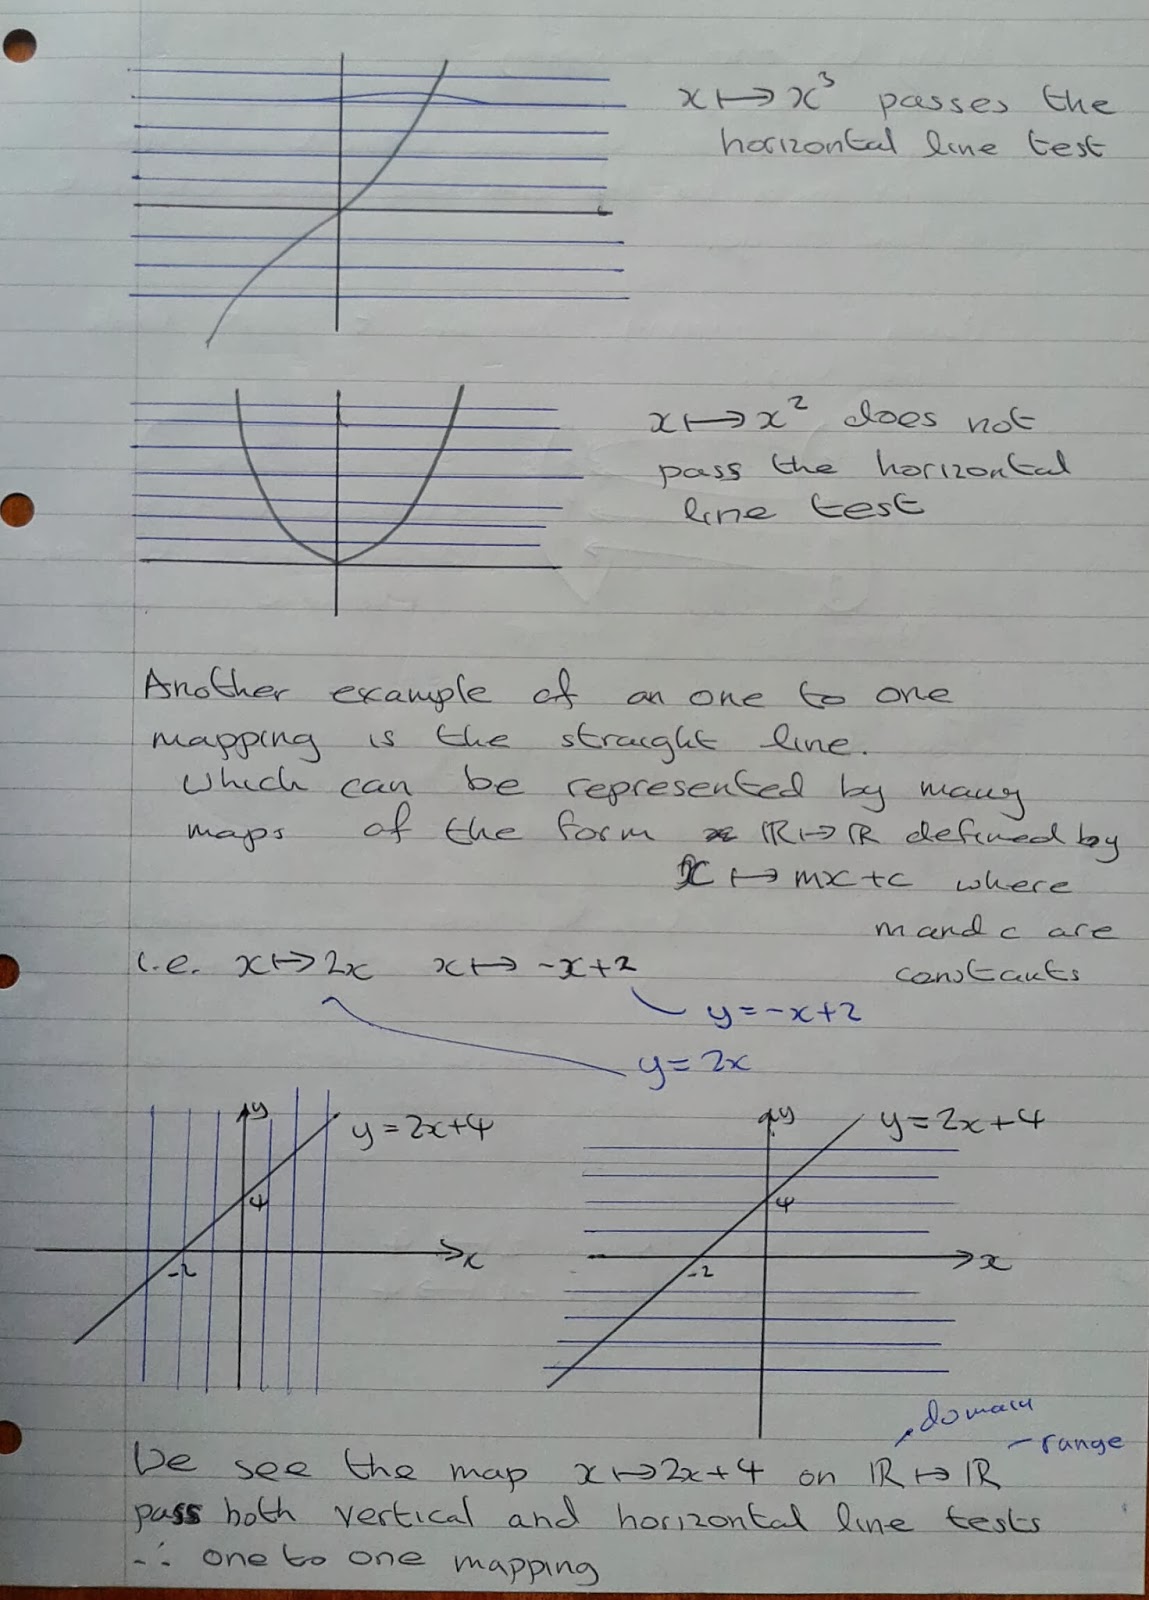 x ↦ x³ passes the
horizontal line test
x ↦ x² does not
pass the horizontal
line test
Another example of an one to one
mapping is the straight line.
Which can be represented by many
maps of the form ℝ ↦ ℝ defined by
x ↦ mx+c where
m and c are
constants
i.e. x ↦ 2x x ↦ -x+2
y = -x+2
y = 2x
y
y = 2x+4
4
-2
x
y
y = 2x+4
4
-2
x
domain
range
We see the map x ↦ 2x+4 on ℝ ↦ ℝ
pass both vertical and horizontal line tests
∴ one to one mapping